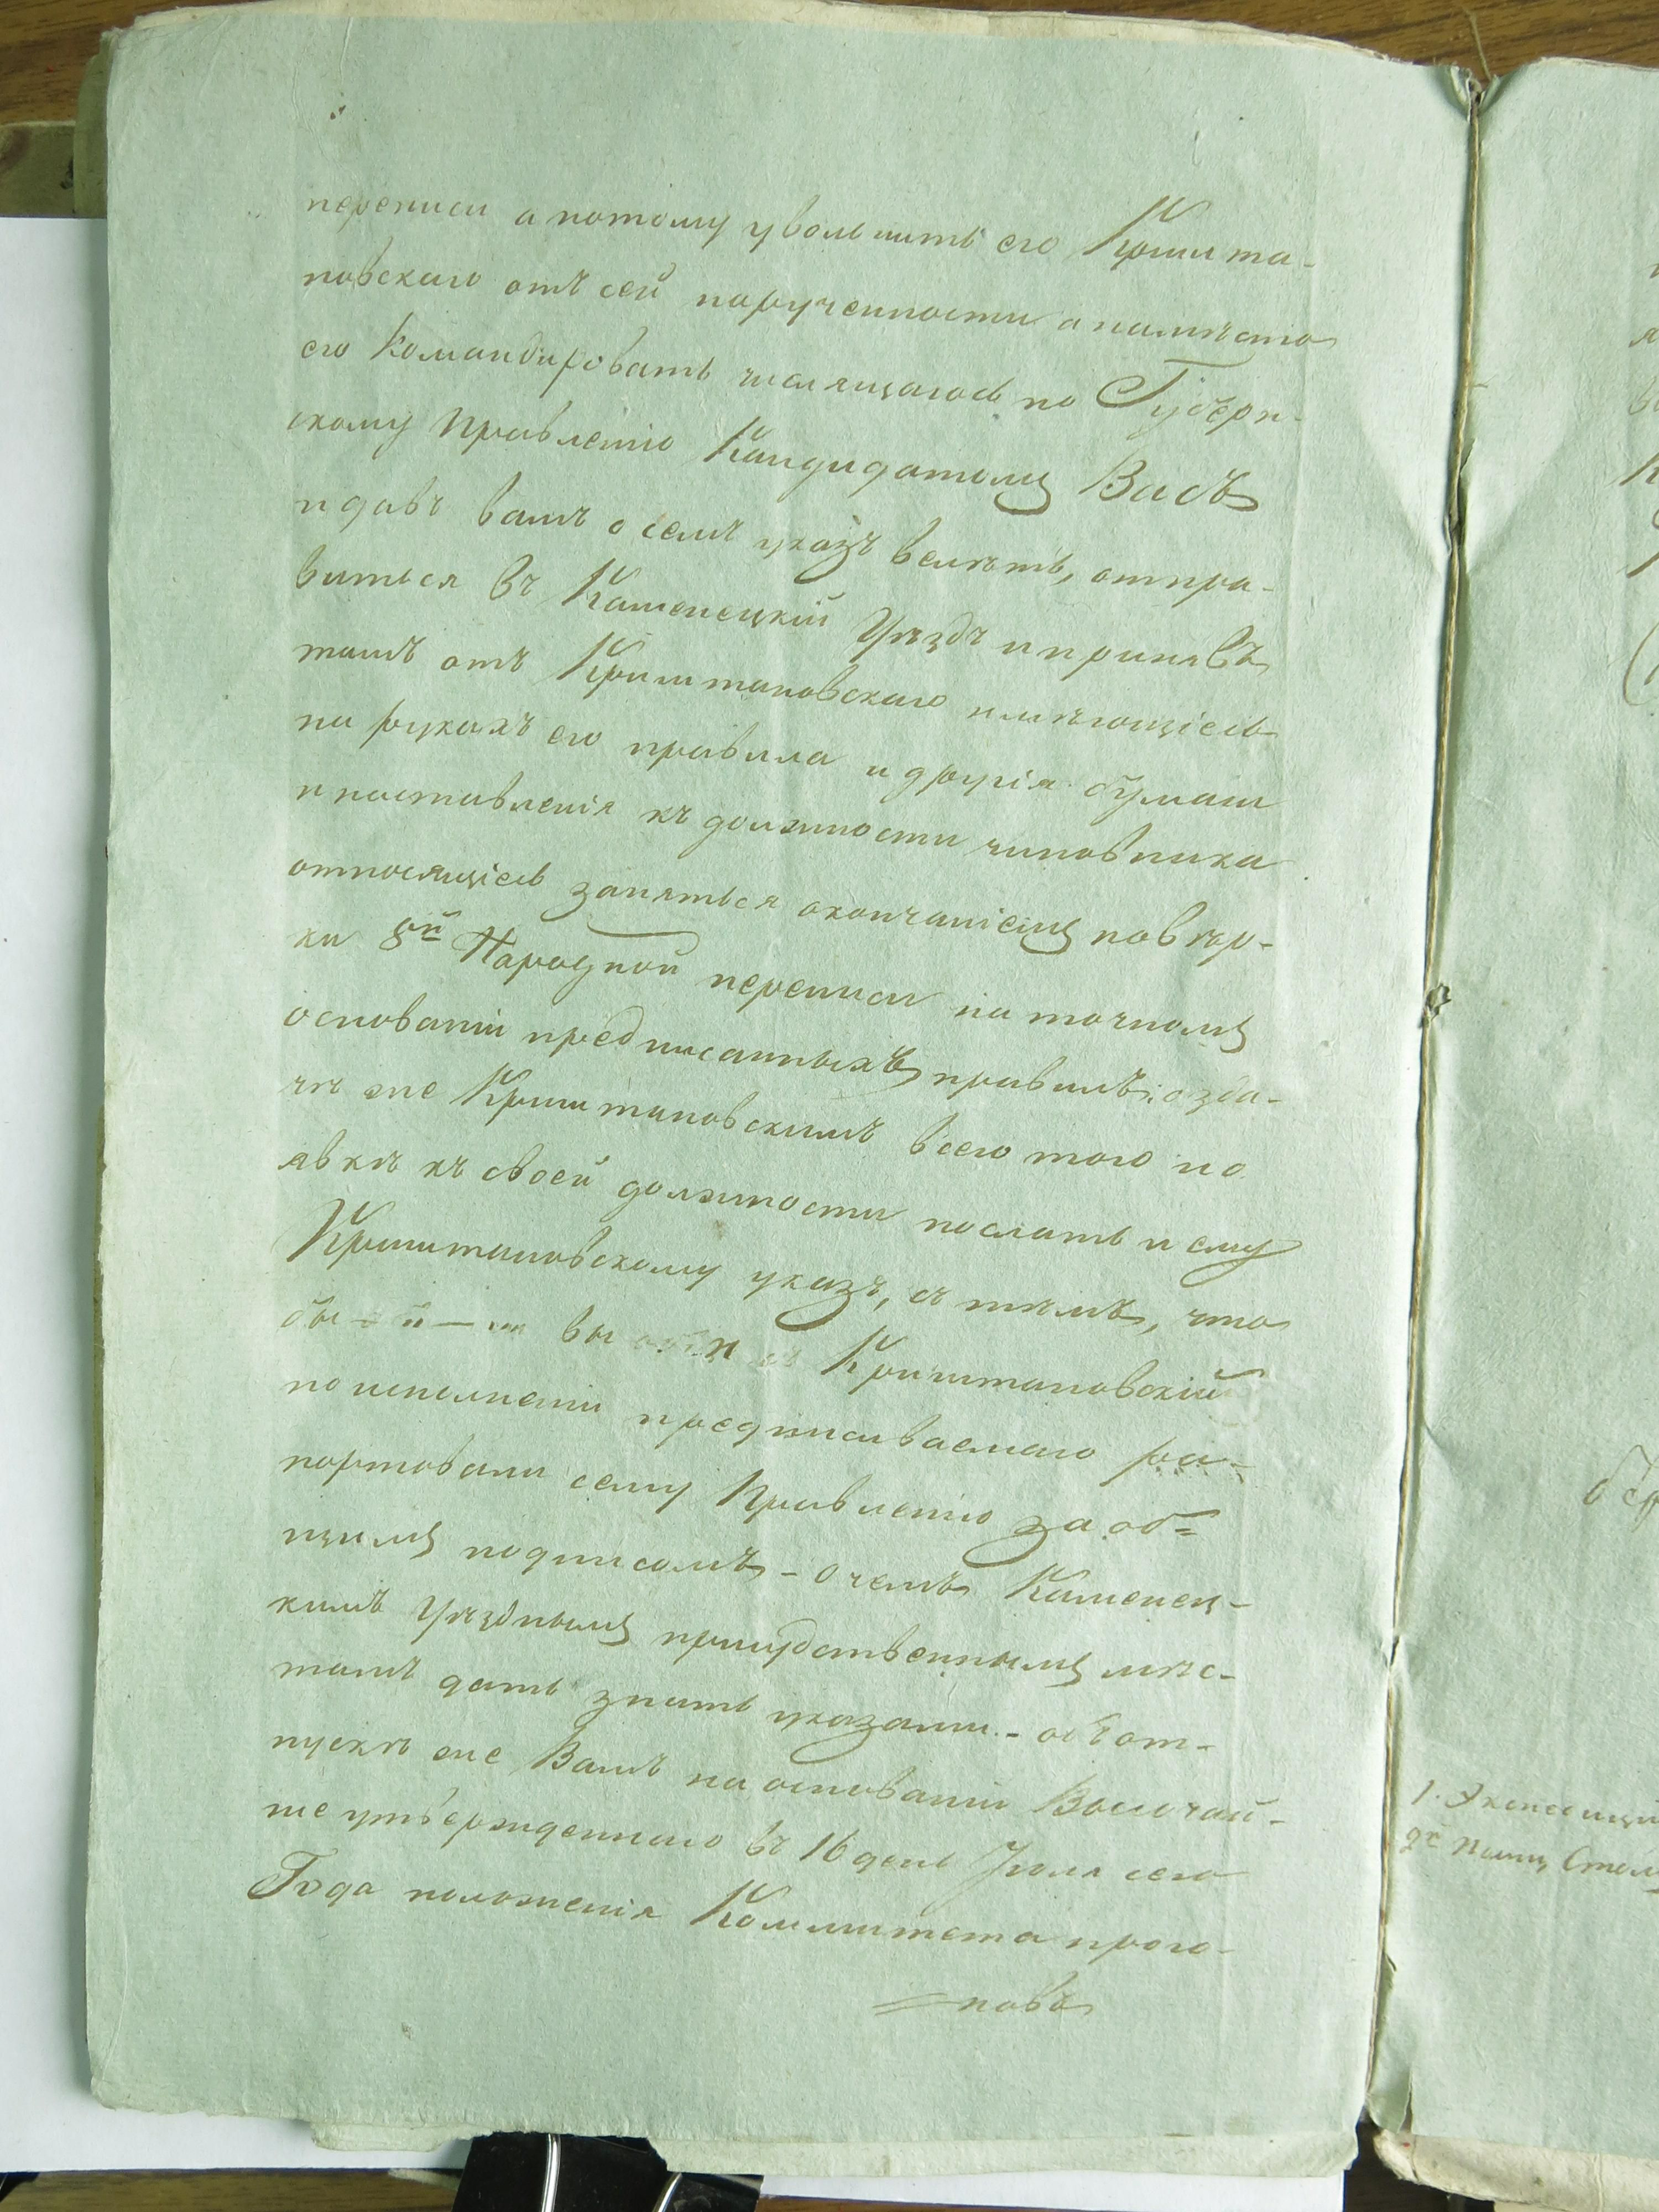 переписи а потому уволшить его Кришта-
новскаго отъ сей порученности а на мѣсто
его Командировать числящагось по Губерн-
скому Правленію Кандидатомъ Васъ
и давъ вамъ о семъ указъ велѣть, отпра-
виться въ Каменецкій Уѣздъ и принявъ
тамъ отъ Криштановскаго имѣющіесь
на рукахъ его правила и другія бумаги
и наставленія къ должности чиновника
относящіесь заняться окончаніемъ повѣр-
ки 8й Народной переписи на точномъ
основаніи предписанныхъ правилъ; о зда-
чѣ же Криштановскимъ всего того и о
явкѣ къ своей должности послать и ему
Криштановскому указъ, съ тѣмъ, что
бы вы и Криштановскій
по исполненіи предписываемаго ра-
портовали сему Правленію за об-
щимъ подписомъ - о чемъ Каменец-
кимъ Уѣзднымъ присудственнымъ мѣс-
тамъ дать знать указами. - объ от-
пускѣ же Вамъ на основаніи Высочай-
ше утвержденнаго въ 16 день Іюля сего
Года положенія Коммитета прого-
новъ
1. Экспедиціи